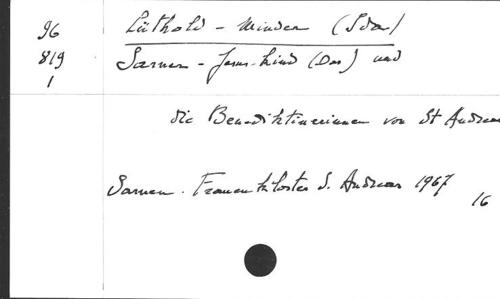 96 Lüthold-Minder (Ida)
819 Sarner-Jesus-Kind (Das) und
1
die Benediktinerinnen von St Andreas
Sarnen. Frauenkloster S. Andreas 1967
16